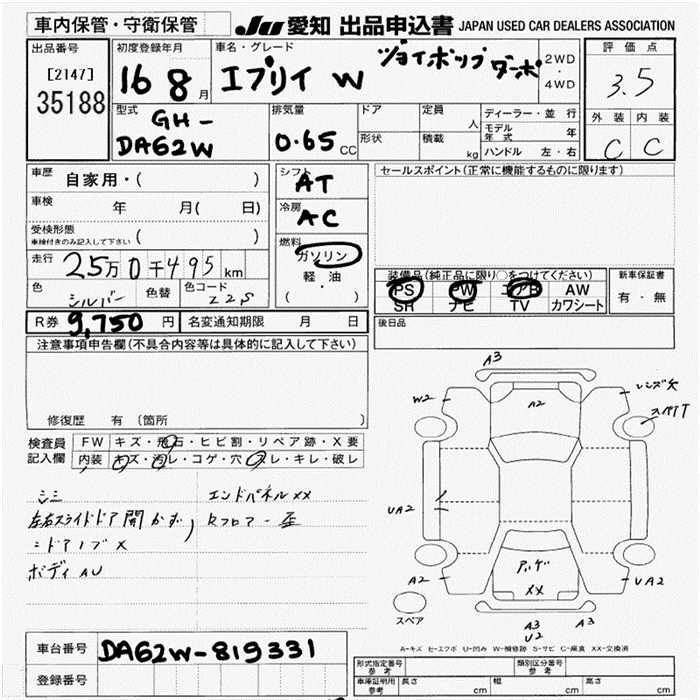 車内保管・守衛保管
JU 愛知 出品申込書 JAPAN USED CAR DEALERS ASSOCIATION
出品番号
[2147]
35188
初度登録年月
16 8 月
車名・グレード
エブリイ W
ジョイポップターボ
2WD
・
4WD
評価点
3.5
外装 内装
C C
型式
GH-
DA62W
排気量
0.65 CC
ドア
形状
定員
人
積載
kg
ディーラー・並行
モデル
年式
年
ハンドル 左・右
車歴
自家用・( )
車検
年 月( 日)
受検形態
車検付きのみ記入して下さい ( )
走行
25万0千495 km
色
シルバー
色替
色コード
Z2S
シフト
AT
冷房
AC
燃料
ガソリン
・
軽・油
( )
セールスポイント(正常に機能するものに限ります)
装備品(純正品に限り○をつけてください)
PS PW エアB AW
SR ナビ TV カワシート
新車保証書
有・無
R券 9,750 円
名変通知期限 月 日
後日品
注意事項申告欄(不具合内容等は具体的に記入して下さい)
修復歴 有 (箇所 )
検査員
記入欄
FW キズ・飛石・ヒビ割・リペア跡・X要
内装 キズ・汚レ・コゲ・穴・スレ・キレ・破レ
エンドパネルXX
左右スライドドア開かず
Rフロアー歪
ボディAU
A3
W2
A2
レンズ欠
スペTT
UA2
A2
アゲ
XX
UA2
スペア
A3
U2
A3
A-キズ E-エクボ U-凹み W-補修跡 S-サビ C-腐食 XX-交換済
車台番号
DA62W-819331
登録番号
形式指定番号
参考
類別区分番号
参考
車庫証明用
参考
長さ cm
幅 cm
高さ cm